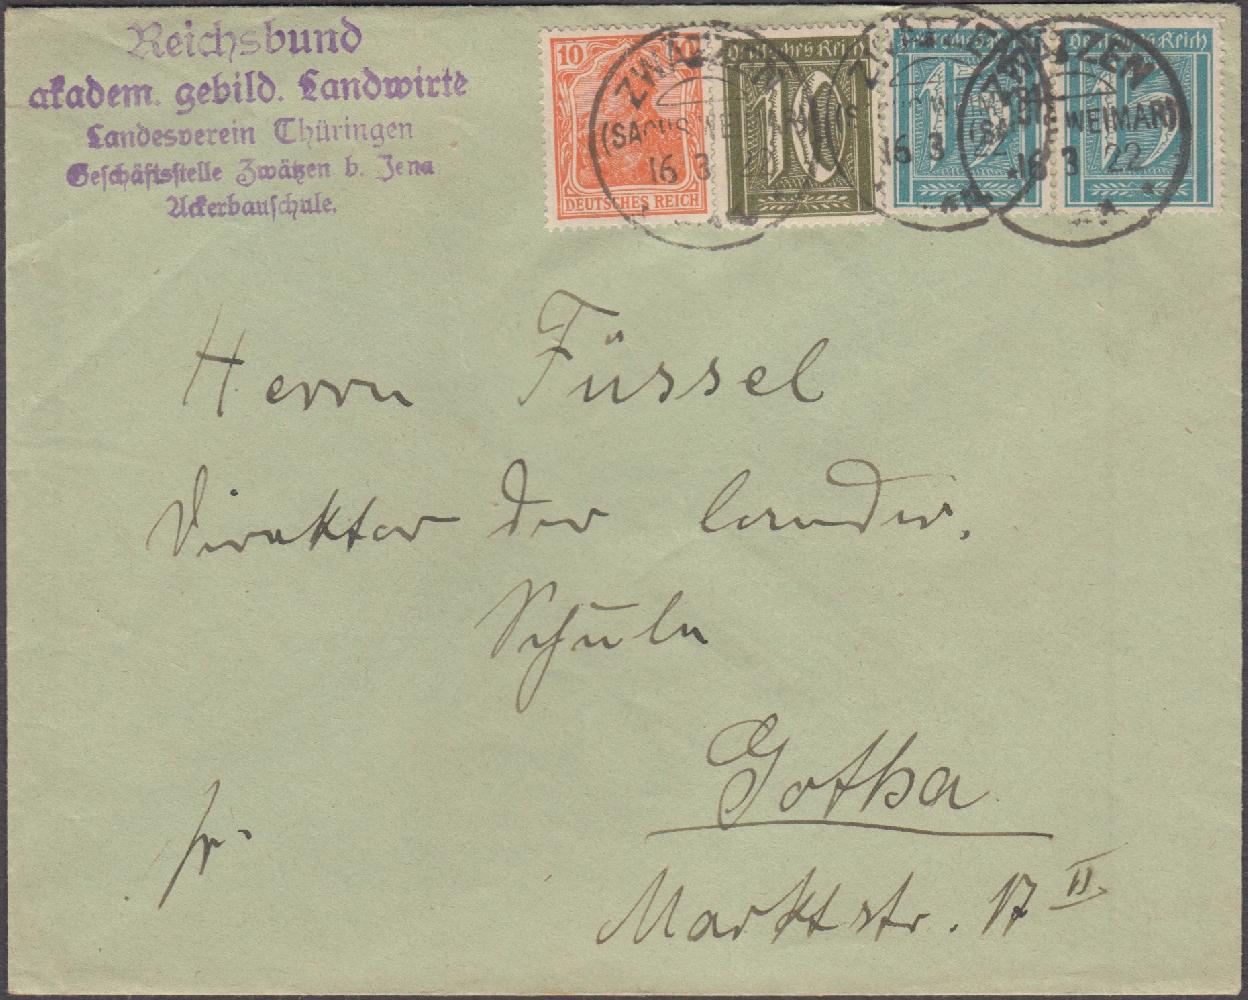 Reichsbund
akadem. gebild. Landwirte
Landesverein Thüringen
Geschäftsstelle Zwätzen b. Jena
Ackerbauschule.
10 10
DEUTSCHES REICH
Deutsches Reich
10
15
Deutsches Reich
15
ZWÄTZEN
(SACHS. WEIMAR)
16 3 22
ZWÄTZEN
16 3 22
ZWÄTZEN
(SACHS. WEIMAR)
16 3 22
Herrn Füssel
Direktor der Landw.
Schule
Gotha
Marktstr. 17 II